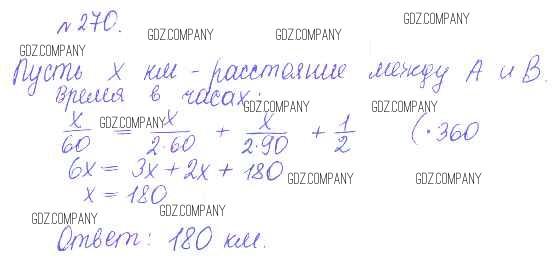 №270.
GDZ.COMPANY GDZ.COMPANY GDZ.COMPANY GDZ.COMPANY
Пусть x км - расстояние между A и B.
Время в часах:
GDZ.COMPANY GDZ.COMPANY
x/60 = x/2·60 + x/2·90 + 1/2 (·360
GDZ.COMPANY
6x = 3x + 2x + 180
GDZ.COMPANY GDZ.COMPANY
x = 180
GDZ.COMPANY GDZ.COMPANY
Ответ: 180 км.